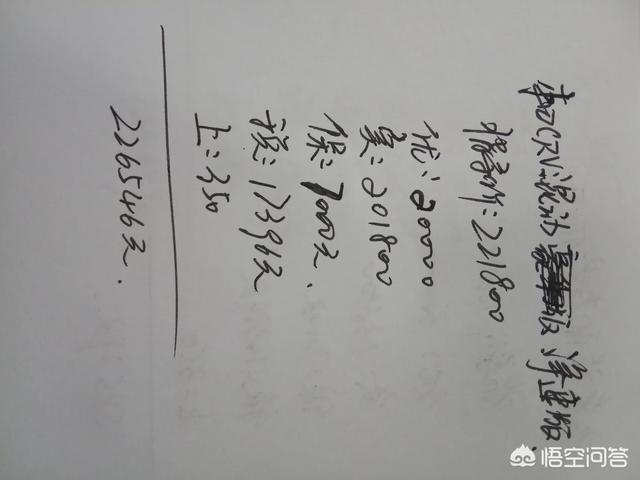 本田CRV混动 版 净速版.
指导价=221800
优:20000
实:201800
保:7000元.
税:17396元
上:350
226546元.
悟空问答